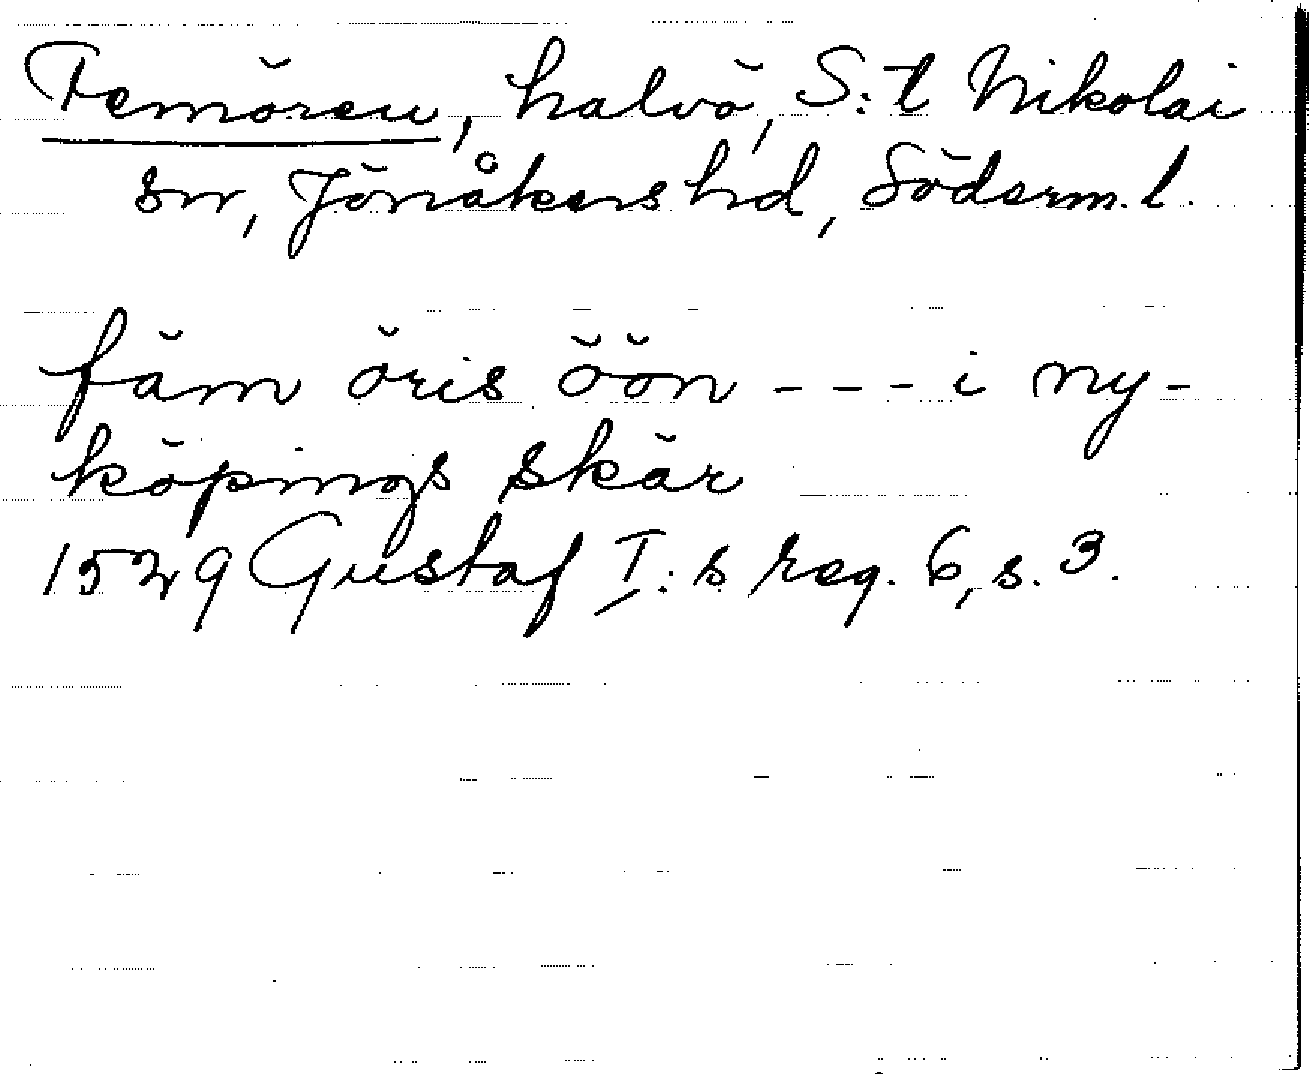 Femören, halvö, S:t Nikolai
sn, Jönåkers hd, Söderm.l.
fäm öris öön --- i ny-
köpings skär
1529 Gustaf I:s reg. 6, s. 3.